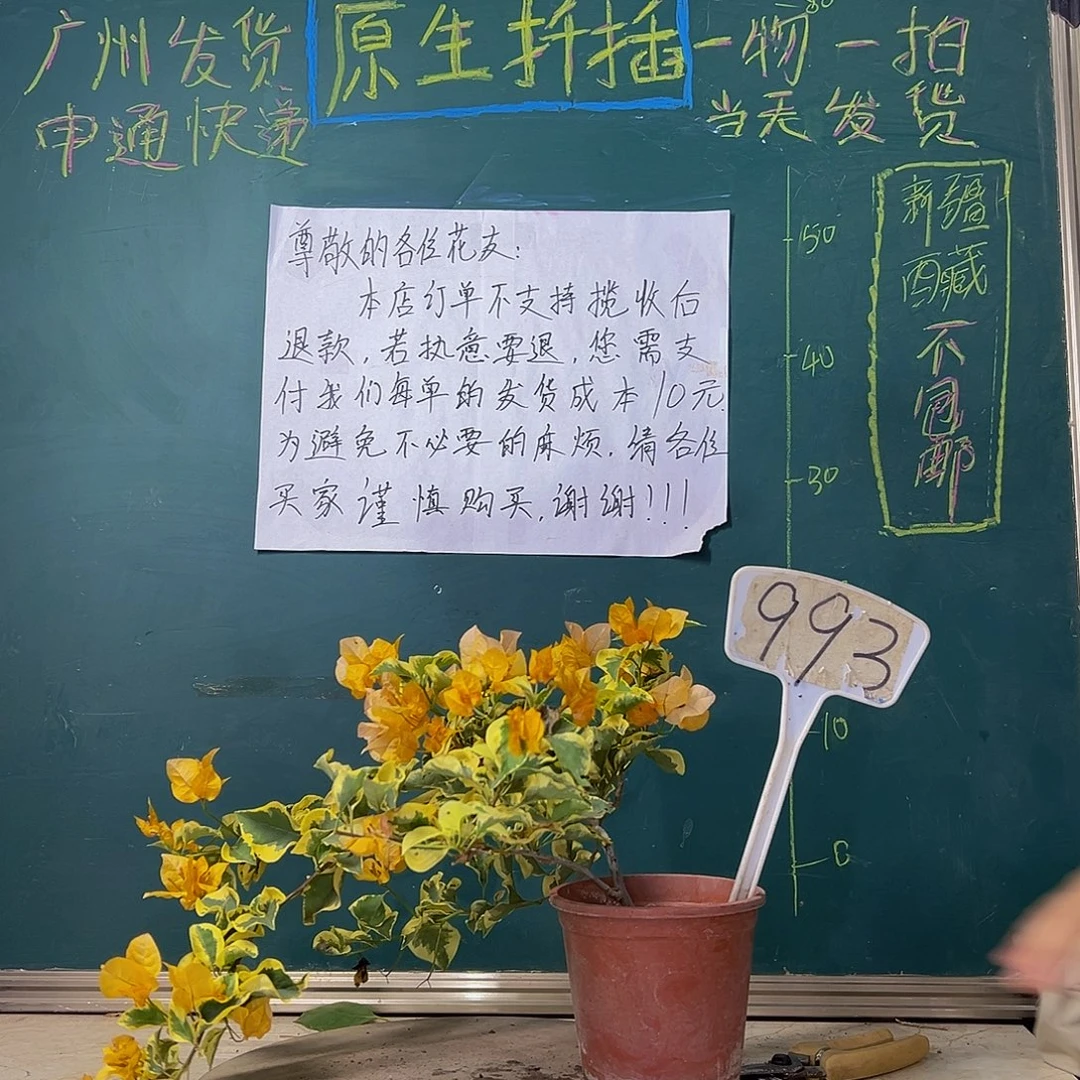 广州发货
申通快递
原生扦插
一物一拍
当天发货
尊敬的各位花友:
本店订单不支持揽收后
退款,若执意要退,您需支
付我们每单的发货成本10元.
为避免不必要的麻烦.请各位
买家谨慎购买,谢谢!!!
新疆
西藏
不
包
邮
50
40
30
10
0
993